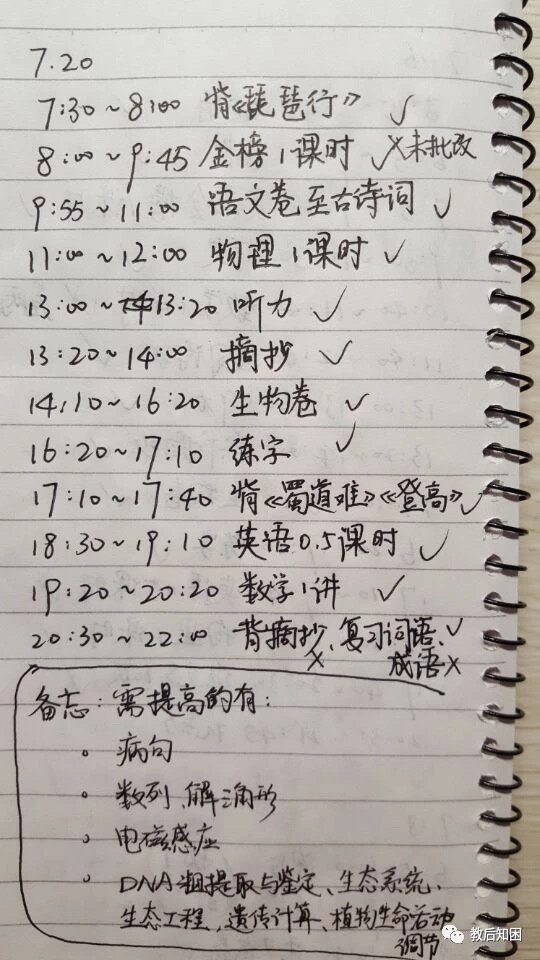 7.20
7:30~8:00 背《琵琶行》 ✓
8:00~9:45 金榜1课时 ✓×未批改
9:55~11:00 语文卷至古诗词 ✓
11:00~12:00 物理1课时 ✓
13:00~13:20 听力 ✓
13:20~14:00 摘抄 ✓
14:10~16:20 生物卷 ✓
16:20~17:10 练字 ✓
17:10~17:40 背《蜀道难》《登高》✓
18:30~19:10 英语0.5课时 ✓
19:20~20:20 数学1讲 ✓
20:30~22:00 背摘抄×、复习词语、✓
成语×
备志:需提高的有:
• 病句
• 数列、解三角形
• 电磁感应
• DNA粗提取与鉴定、生态系统、
生态工程、遗传计算、植物生命活动
调节
教后知困